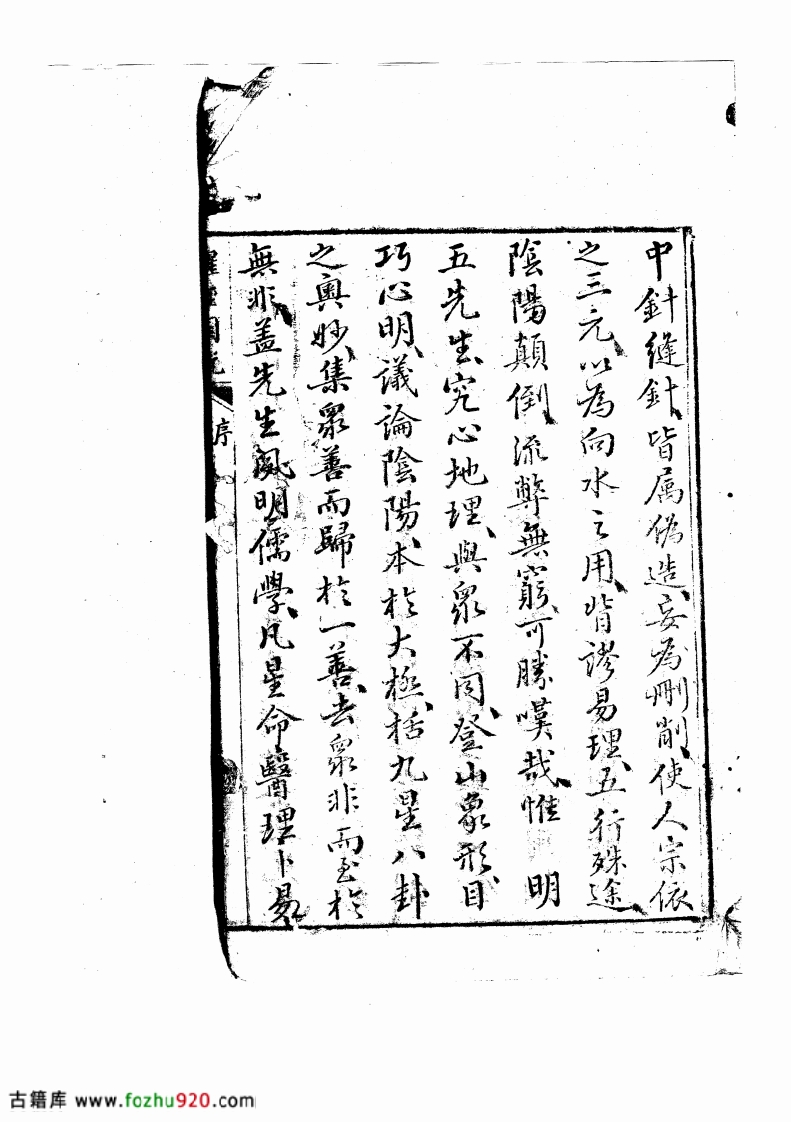 中針縫針、皆属偽造、妄為刪削、使人宗依
之三元、以為向水之用、背謬易理、五行殊途、
陰陽顛倒、流弊無窮、可勝嘆哉、惟 明
五先生、究心地理、與眾不同、登山象形、目
巧心明、議論陰陽、本於大極、括九星八卦
之奧妙、集眾善而歸於一善、去眾非而至於
無非、盖先生夙明儒學、凡星命醫理卜易、
序
古籍库 www.fozhu920.com